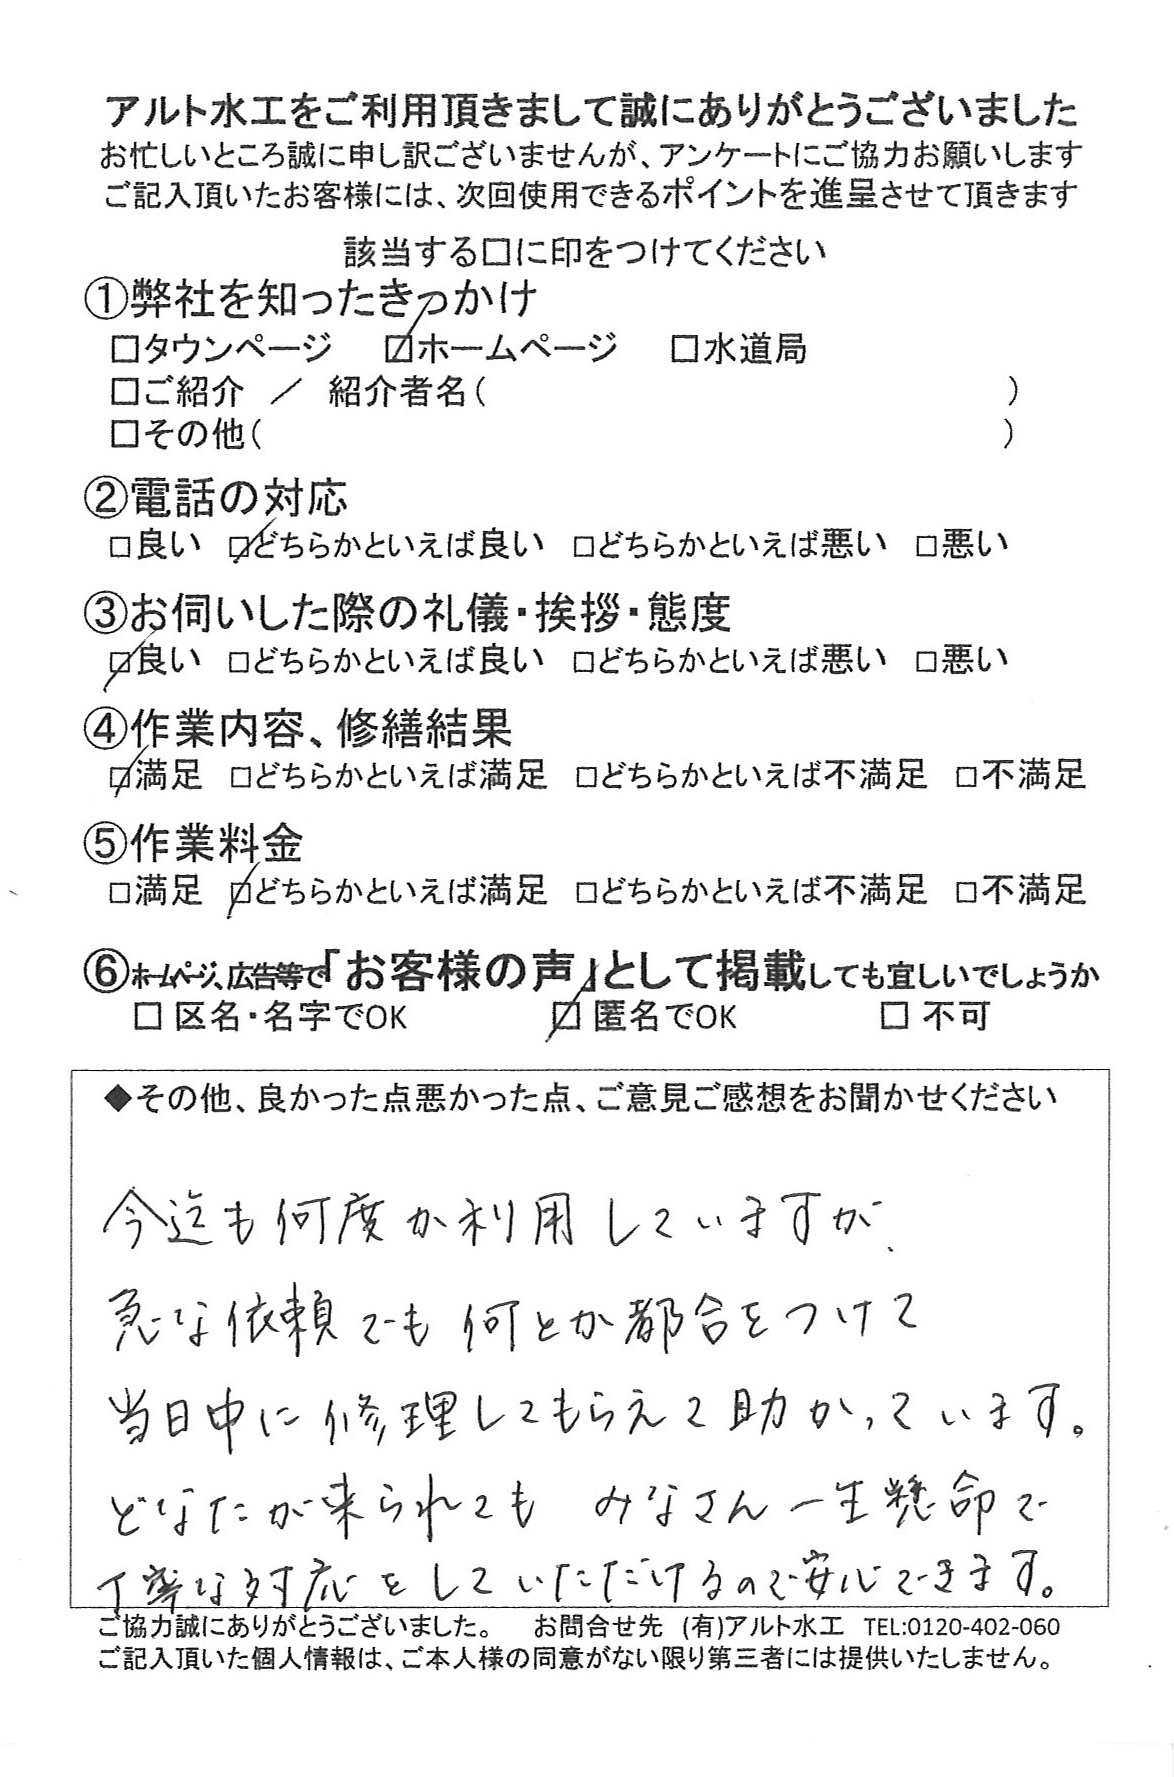 アルト水工をご利用頂きまして誠にありがとうございました
お忙しいところ誠に申し訳ございませんが、アンケートにご協力お願いします
ご記入頂いたお客様には、次回使用できるポイントを進呈させて頂きます
該当する□に印をつけてください
①弊社を知ったきっかけ
□タウンページ ☑ホームページ □水道局
□ご紹介 ／ 紹介者名( )
□その他( )
②電話の対応
□良い ☑どちらかといえば良い □どちらかといえば悪い □悪い
③お伺いした際の礼儀・挨拶・態度
☑良い □どちらかといえば良い □どちらかといえば悪い □悪い
④作業内容、修繕結果
☑満足 □どちらかといえば満足 □どちらかといえば不満足 □不満足
⑤作業料金
□満足 ☑どちらかといえば満足 □どちらかといえば不満足 □不満足
⑥ホームページ、広告等で「お客様の声」として掲載しても宜しいでしょうか
□ 区名・名字でOK ☑ 匿名でOK □ 不可
◆その他、良かった点悪かった点、ご意見ご感想をお聞かせください
今迄も何度か利用していますが、
急な依頼でも何とか都合をつけて
当日中に修理してもらえて助かっています。
どなたが来られても みなさん一生懸命で
丁寧な対応をしていただけるので安心できます。
ご協力誠にありがとうございました。 お問合せ先 (有)アルト水工 TEL:0120-402-060
ご記入頂いた個人情報は、ご本人様の同意がない限り第三者には提供いたしません。